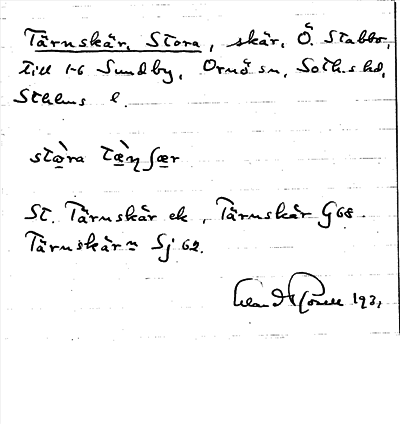 Tärnskär, Stora, skär, Ö. Stabbo,
till 1-6 Sundby, Ornö sn, Soth.s hd,
Sthlms l.
stò̤ra tæ̀ɳʃær
St. Tärnskär ek, Tärnskär G 68
Tärnskärn Sj 62.
1931